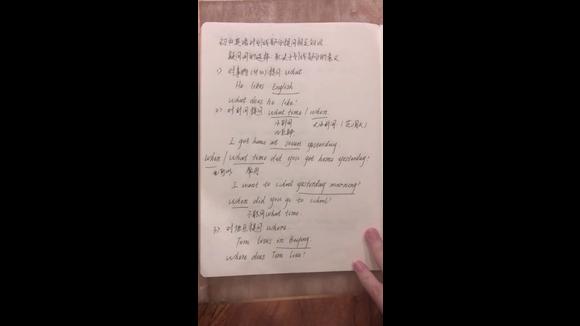 初中英语对划线部分提问相关知识
疑问词的选择取决于划线部分的意义
1) 对事物(什么)提问 what
He likes English
What does he like?
2) 对时间提问 what time / when
小时间 大小时间
I got home at seven yesterday.
when / what time did you got home yesterday?
I went to school yesterday morning?
When did you go to school?
不能问 what time
3) 对地点提问 where
Tom lives in Beijing.
Where does Tom live?